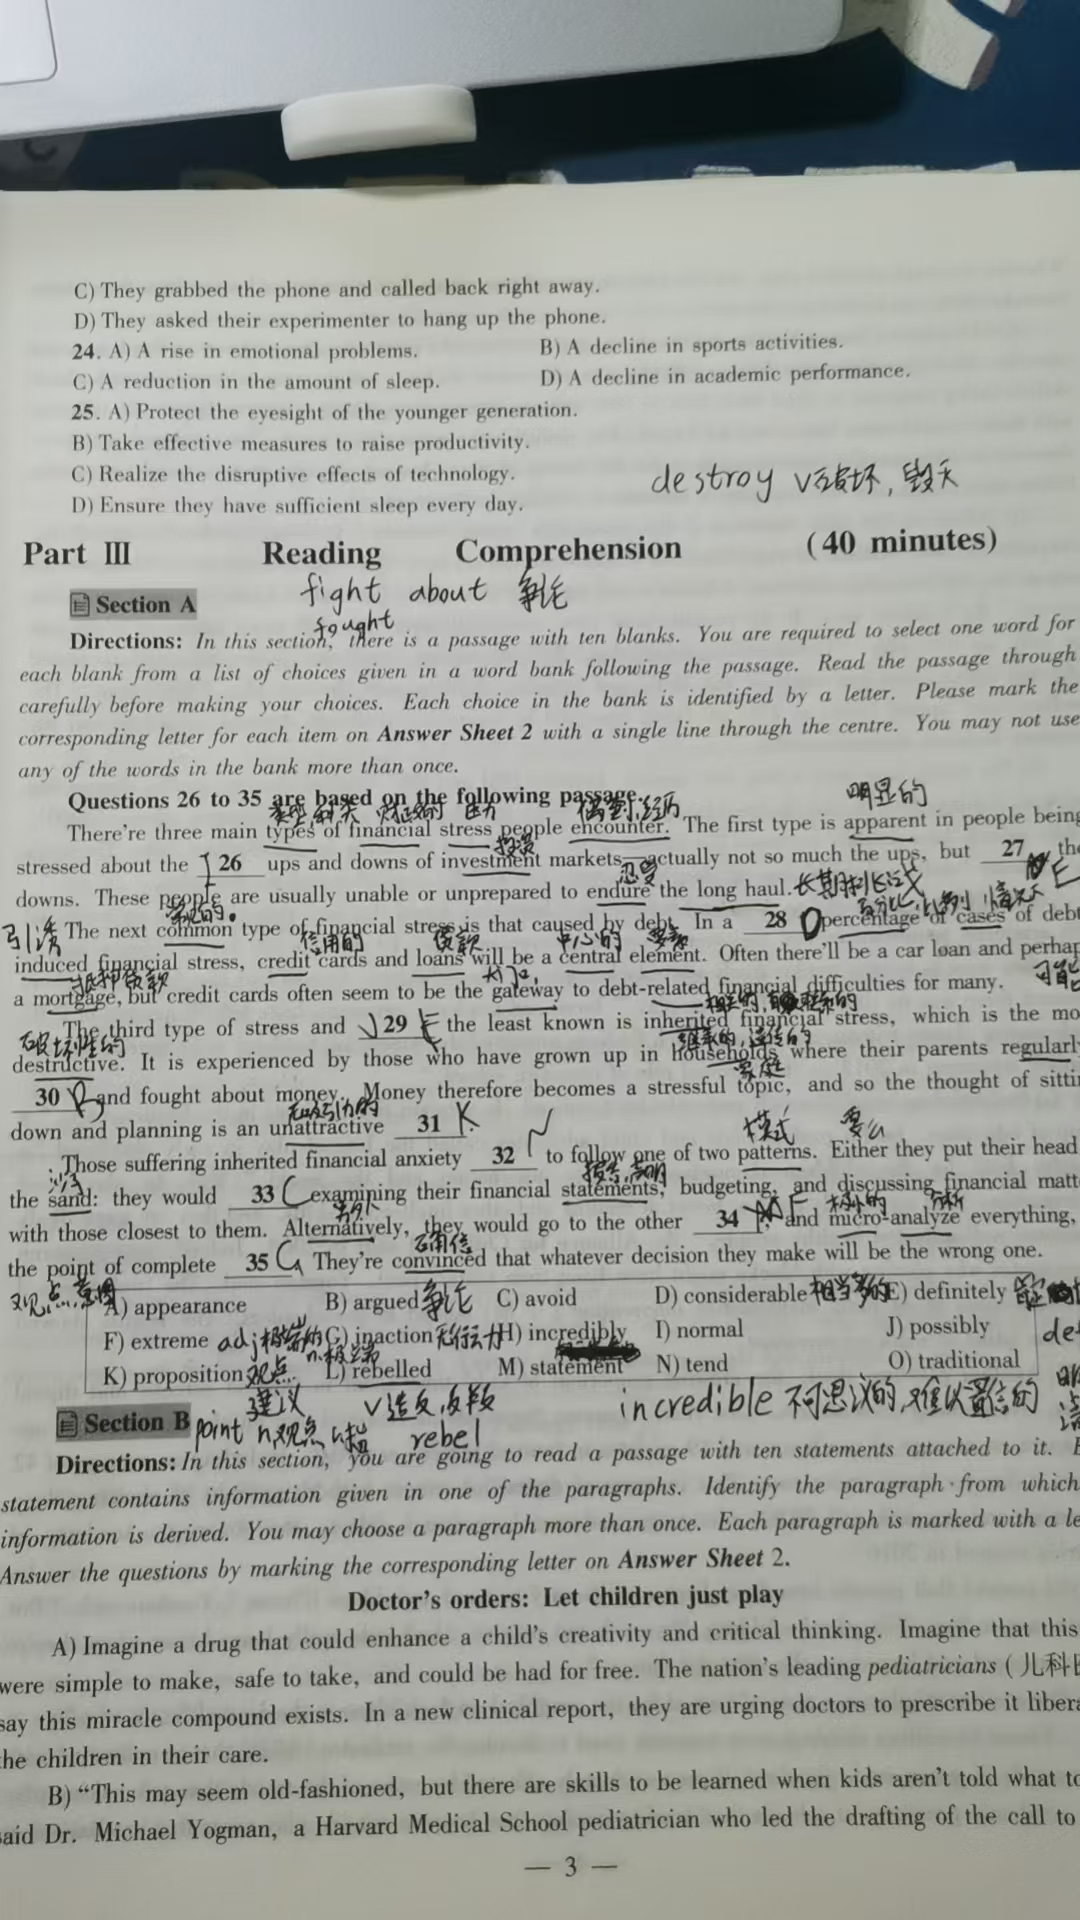 C) They grabbed the phone and called back right away.
D) They asked their experimenter to hang up the phone.
24. A) A rise in emotional problems. B) A decline in sports activities.
C) A reduction in the amount of sleep. D) A decline in academic performance.
25. A) Protect the eyesight of the younger generation.
B) Take effective measures to raise productivity.
C) Realize the disruptive effects of technology.
destroy v破坏,毁灭
D) Ensure they have sufficient sleep every day.
Part III Reading Comprehension (40 minutes)
Section A
fight about 争论
fought
Directions: In this section, there is a passage with ten blanks. You are required to select one word for
each blank from a list of choices given in a word bank following the passage. Read the passage through
carefully before making your choices. Each choice in the bank is identified by a letter. Please mark the
corresponding letter for each item on Answer Sheet 2 with a single line through the centre. You may not use
any of the words in the bank more than once.
Questions 26 to 35 are based on the following passage.
明显的
There're three main types of financial stress people encounter. The first type is apparent in people being
投资
stressed about the I 26 ups and downs of investment markets, actually not so much the ups, but 27 the
忍受
downs. These people are usually unable or unprepared to endure the long haul.
常见的.
The next common type of financial stress is that caused by debt. In a 28 D percentage of cases of debt
引诱 信用的 贷款 中心的 要素
induced financial stress, credit cards and loans will be a central element. Often there'll be a car loan and perhap
抵押贷款
a mortgage, but credit cards often seem to be the gateway to debt-related financial difficulties for many.
The third type of stress and J 29 E the least known is inherited financial stress, which is the mo
破坏性的 继承的,遗传的
destructive. It is experienced by those who have grown up in households where their parents regularly
家庭
30 B and fought about money. Money therefore becomes a stressful topic, and so the thought of sitti
无吸引力的
down and planning is an unattractive 31 K.
模式 要么
Those suffering inherited financial anxiety 32 N to follow one of two patterns. Either they put their head
沙
the sand: they would 33 C examining their financial statements, budgeting, and discussing financial matt
with those closest to them. Alternatively, they would go to the other 34 F and micro-analyze everything,
the point of complete 35 G They're convinced that whatever decision they make will be the wrong one.
A) appearance B) argued 争论 C) avoid D) considerable 相当多的 E) definitely
F) extreme adj极端的 G) inaction H) incredibly I) normal J) possibly
n.极端
K) proposition 观点 L) rebelled M) statement N) tend O) traditional
建议 v造反,反叛 incredible 不可思议的,难以置信的
Section B
point n观点 rebel
Directions: In this section, you are going to read a passage with ten statements attached to it. E
statement contains information given in one of the paragraphs. Identify the paragraph from which
information is derived. You may choose a paragraph more than once. Each paragraph is marked with a le
Answer the questions by marking the corresponding letter on Answer Sheet 2.
Doctor's orders: Let children just play
A) Imagine a drug that could enhance a child's creativity and critical thinking. Imagine that this
were simple to make, safe to take, and could be had for free. The nation's leading pediatricians (儿科医
say this miracle compound exists. In a new clinical report, they are urging doctors to prescribe it libera
the children in their care.
B) "This may seem old-fashioned, but there are skills to be learned when kids aren't told what to
said Dr. Michael Yogman, a Harvard Medical School pediatrician who led the drafting of the call to
— 3 —